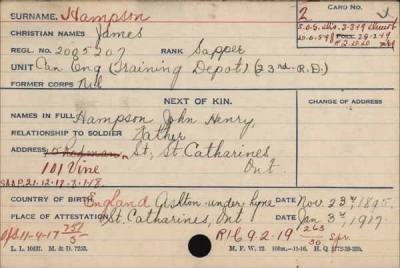 SURNAME. Hampson CARD NO.
CHRISTIAN NAMES James 2
REGL. NO. 2005207 RANK Sapper
UNIT Can Eng (Training Depot) (23rd R.D.)
FORMER CORPS Nil
NEXT OF KIN. CHANGE OF ADDRESS
NAMES IN FULL Hampson John Henry,
RELATIONSHIP TO SOLDIER Father
ADDRESS Redman St, St Catharines
101 Vine Ont.
COUNTRY OF BIRTH England Ashton-under-Lyne DATE Nov. 23rd 1895
PLACE OF ATTESTATION St. Catharines, Ont DATE Jan 3rd, 1917
R169-2-19
L. L. M. & D. M. F. W.